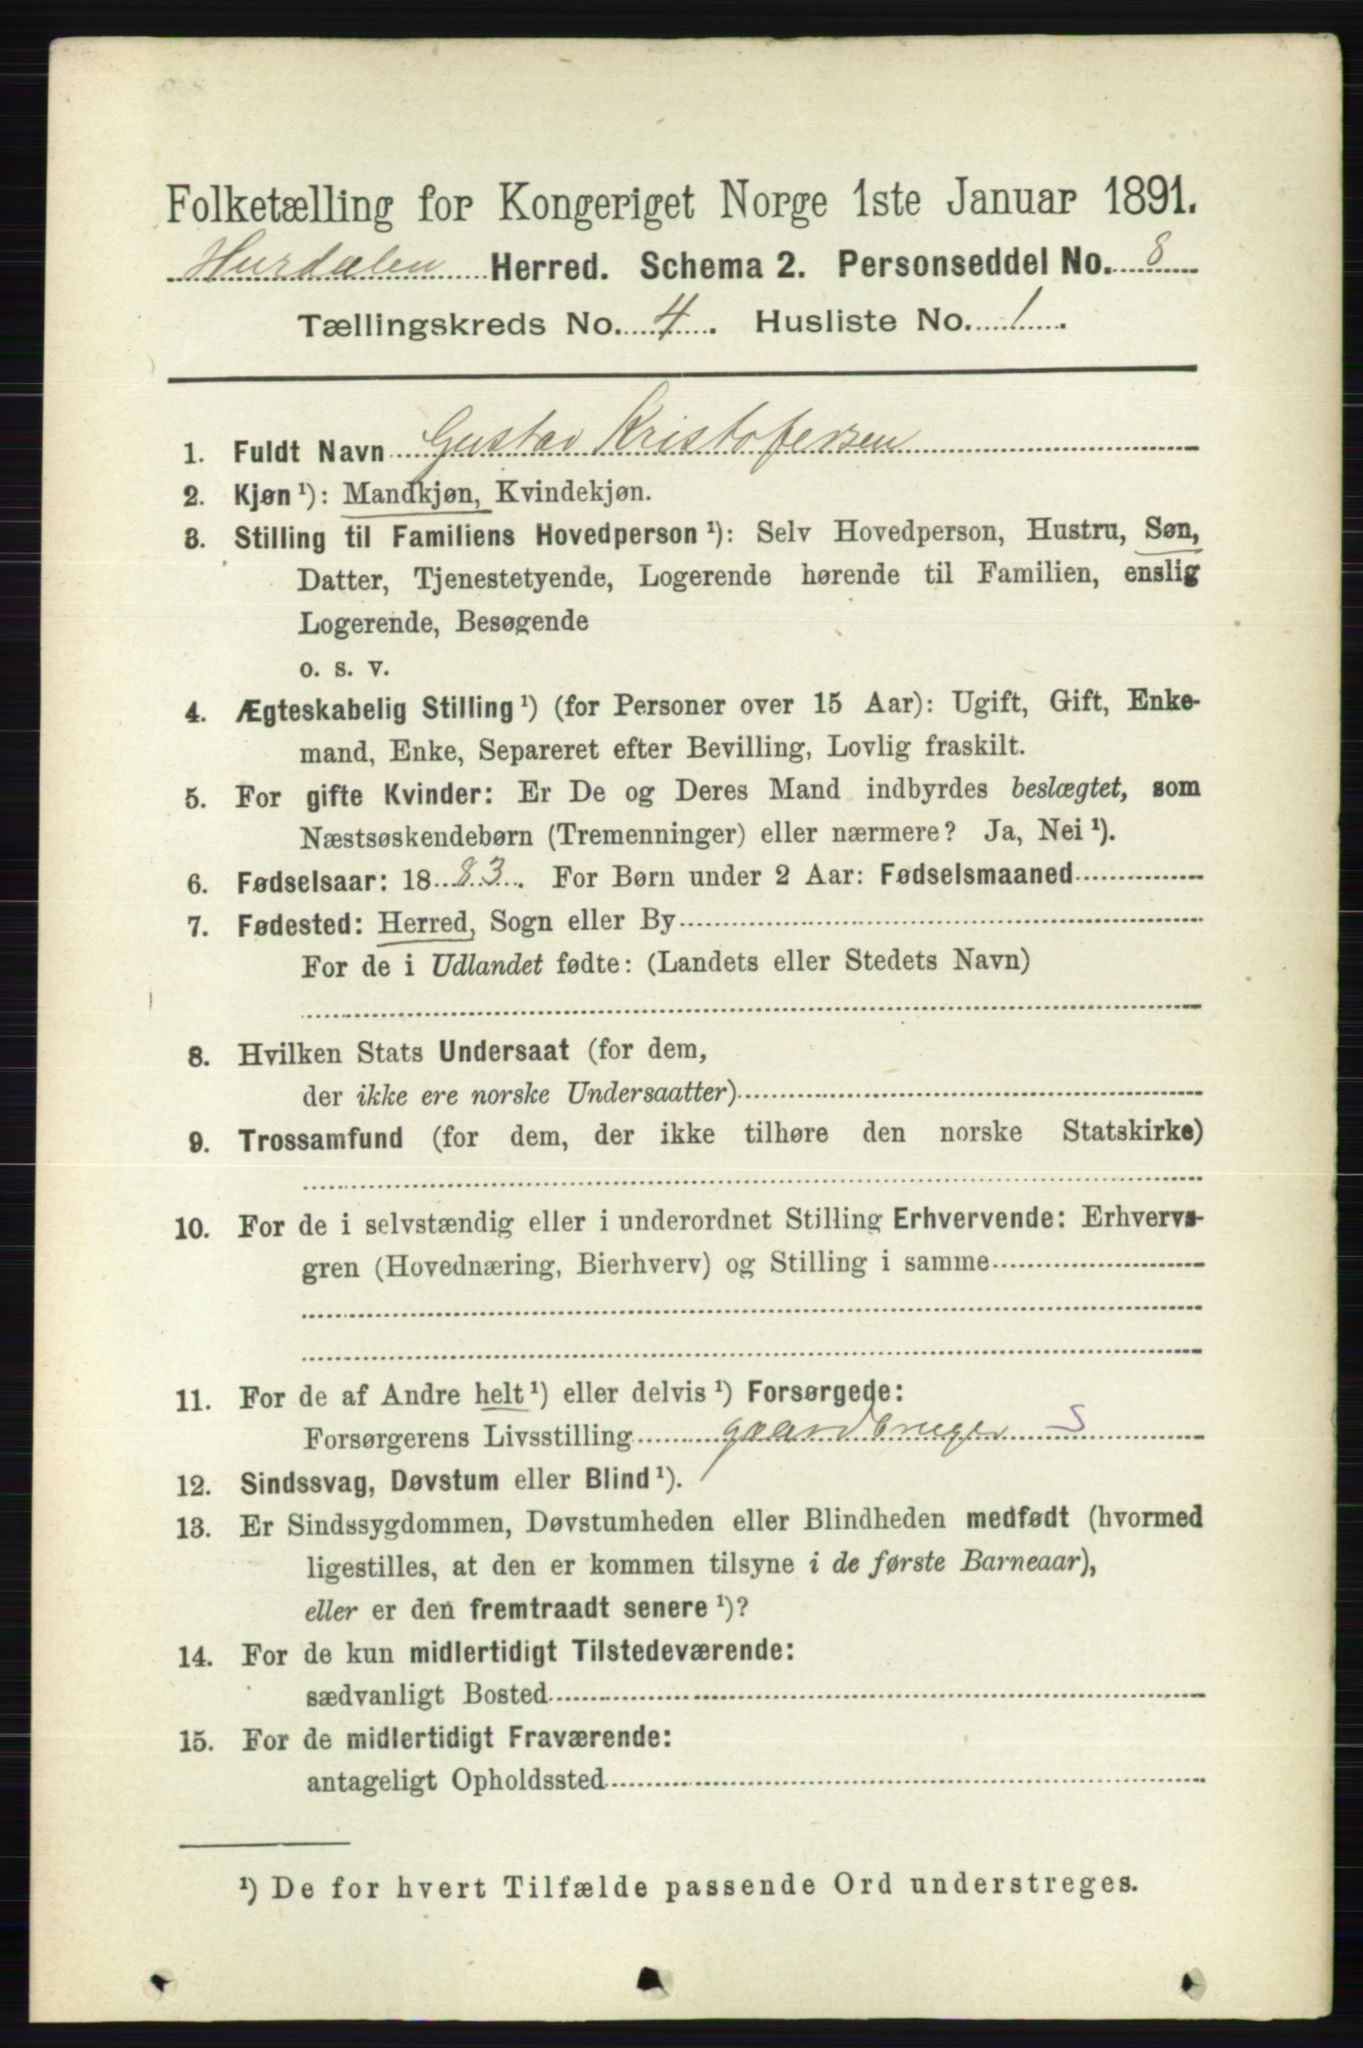 Folketælling for Kongeriget Norge 1ste Januar 1891.
Hurdalen Herred. Schema 2. Personseddel No. 8
Tællingskreds No. 4. Husliste No. 1.
1. Fuldt Navn Gustav Kristofersen
2. Kjøn ¹): Mandkjøn, Kvindekjøn.
3. Stilling til Familiens Hovedperson ¹): Selv Hovedperson, Hustru, Søn,
Datter, Tjenestetyende, Logerende hørende til Familien, enslig
Logerende, Besøgende
o. s. v.
4. Ægteskabelig Stilling ¹) (for Personer over 15 Aar): Ugift, Gift, Enke-
mand, Enke, Separeret efter Bevilling, Lovlig fraskilt.
5. For gifte Kvinder: Er De og Deres Mand indbyrdes beslægtet, som
Næstsøskendebørn (Tremenninger) eller nærmere? Ja, Nei ¹).
6. Fødselsaar: 1883. For Børn under 2 Aar: Fødselsmaaned
7. Fødested: Herred, Sogn eller By
For de i Udlandet fødte: (Landets eller Stedets Navn)
8. Hvilken Stats Undersaat (for dem,
der ikke ere norske Undersaatter)
9. Trossamfund (for dem, der ikke tilhøre den norske Statskirke)
10. For de i selvstændig eller i underordnet Stilling Erhvervende: Erhvervs-
gren (Hovednæring, Bierhverv) og Stilling i samme
11. For de af Andre helt ¹) eller delvis ¹) Forsørgede:
Forsørgerens Livsstilling gaardbruger S
12. Sindssvag, Døvstum eller Blind ¹).
13. Er Sindssygdommen, Døvstumheden eller Blindheden medfødt (hvormed
ligestilles, at den er kommen tilsyne i de første Barneaar),
eller er den fremtraadt senere ¹)?
14. For de kun midlertidigt Tilstedeværende:
sædvanligt Bosted
15. For de midlertidigt Fraværende:
antageligt Opholdssted
¹) De for hvert Tilfælde passende Ord understreges.